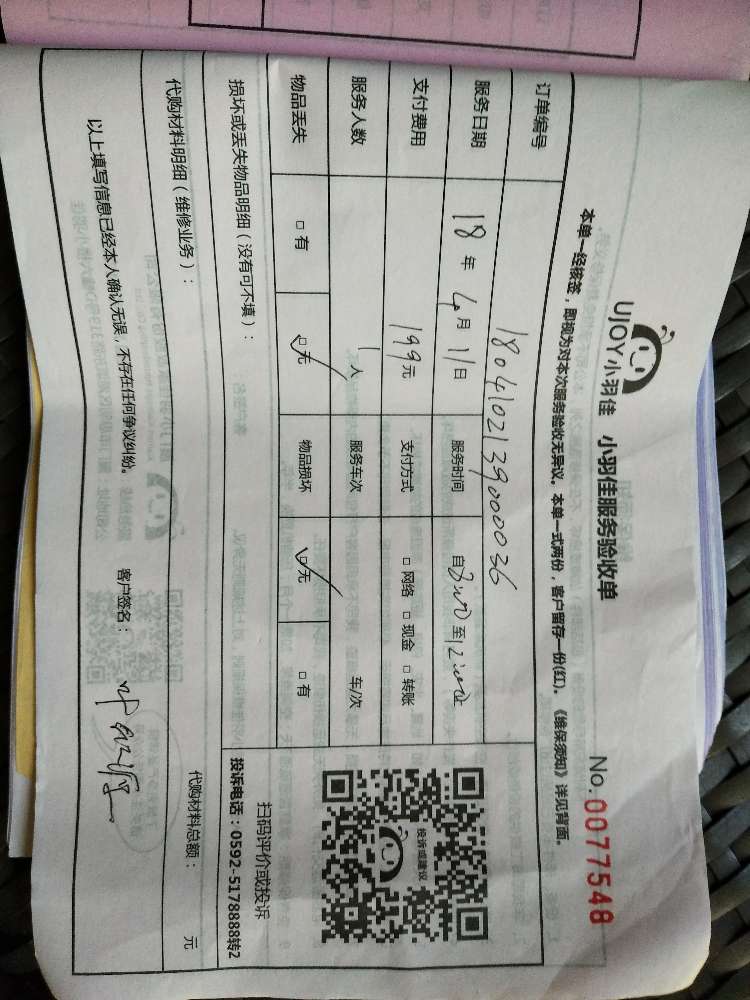 UJOY小羽佳 小羽佳服务验收单 No.0077548
本单一经核签，即视为对本次服务验收无异议。本单一式两份，客户留存一份(红)。《维保须知》详见背面。
订单编号 180410213900036
服务日期 18年4月11日 服务时间 自8:00至12:00止
支付费用 199元 支付方式 □网络 □现金 □转账
服务人数 1人 服务车次 车/次
物品丢失 □有 □无 物品损坏 □无 □有
损坏或丢失物品明细（没有可不填）：
投诉或建议
扫码评价或投诉
投诉电话：0592-5178888转2
代购材料明细（维修业务）： 代购材料总额： 元
以上填写信息已经本人确认无误，不存在任何争议纠纷。 客户签名：